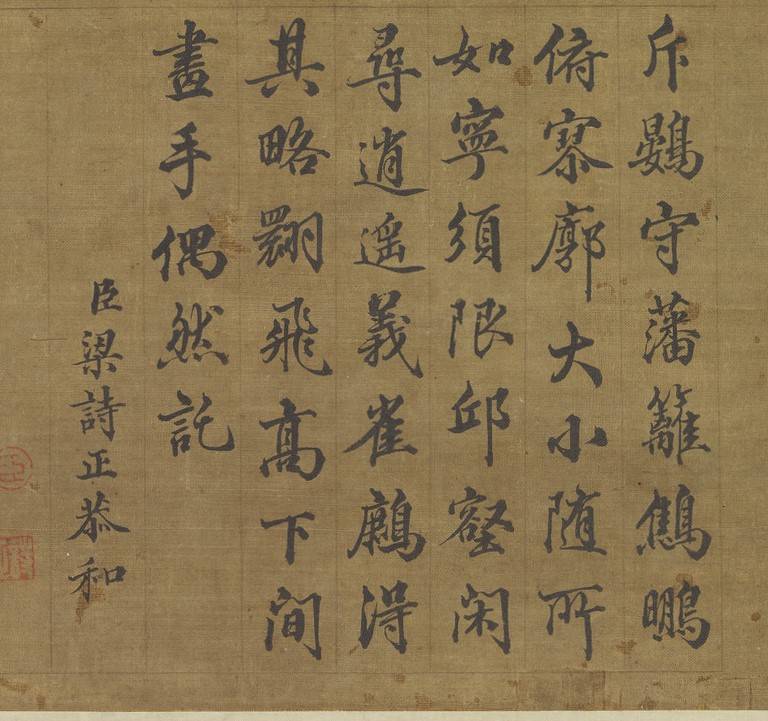 斥鷃守藩籬鷦䳟
俯寥廓大小随所
如寧須限邱壑閑
尋逍遥義雀得
其略翾飛高下間
畫手偶然託
臣梁詩正恭和
臣